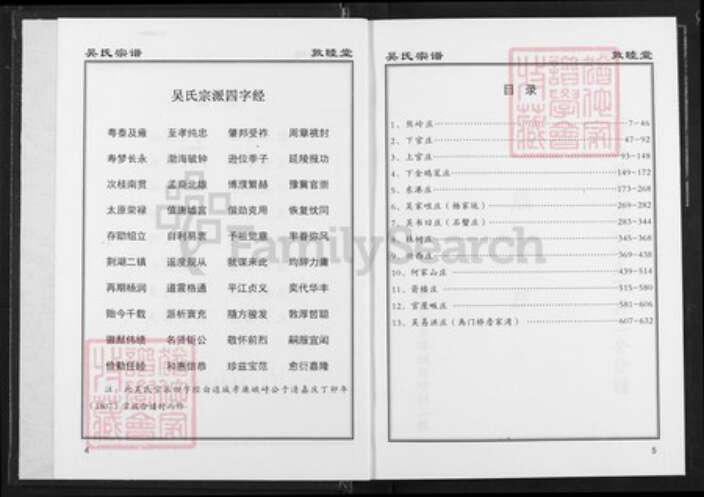 吴氏宗谱 敦睦堂
吴氏宗派四字经
粤泰及雍 至孝纯忠 肇邦受祚 周章褫封
寿梦长永 渤海毓钟 逊位季子 延陵报功
次桂南贯 孟 北雄 博濮繁赫 豫冀官崇
太原荣禄 值唐墟宫 偕勋克用 恢复忱同
存勖绍立 自利易衷 予祖觉意 半眷弥风
荆湖二镇 返度脱从 就谋来此 均辞力庸
再期杨润 道震格通 平江贞义 奕代华丰
贻今千载 派析寰充 随方骏发 敦厚哲聪
谢猷伟绩 名贤钜公 敬怀前烈 嗣服宜闳
俭勤任睦 和惠信恭 珍兹宝范 愈衍嘉隆
注：此吴氏宗派四字经由 公于清嘉庆丁卯年
（1807）宗派合谱时
4
吴氏宗谱 敦睦堂
目 录
1、熊岭庄 7-46
2、下官庄 47-92
3、上官庄 93-148
4、下金鸡窠庄 149-172
5、东港庄 173-268
6、吴家咀庄（杨家垅） 269-282
7、吴书旧庄（石蟹庄） 283-344
8、株树庄 345-368
9、 西庄 369-438
10、何家山庄 439-514
11、箭楼庄 515-580
12、官屋畈庄 581-606
13、吴易洪庄（禹门桥詹家湾） 607-632
5
FamilySearch